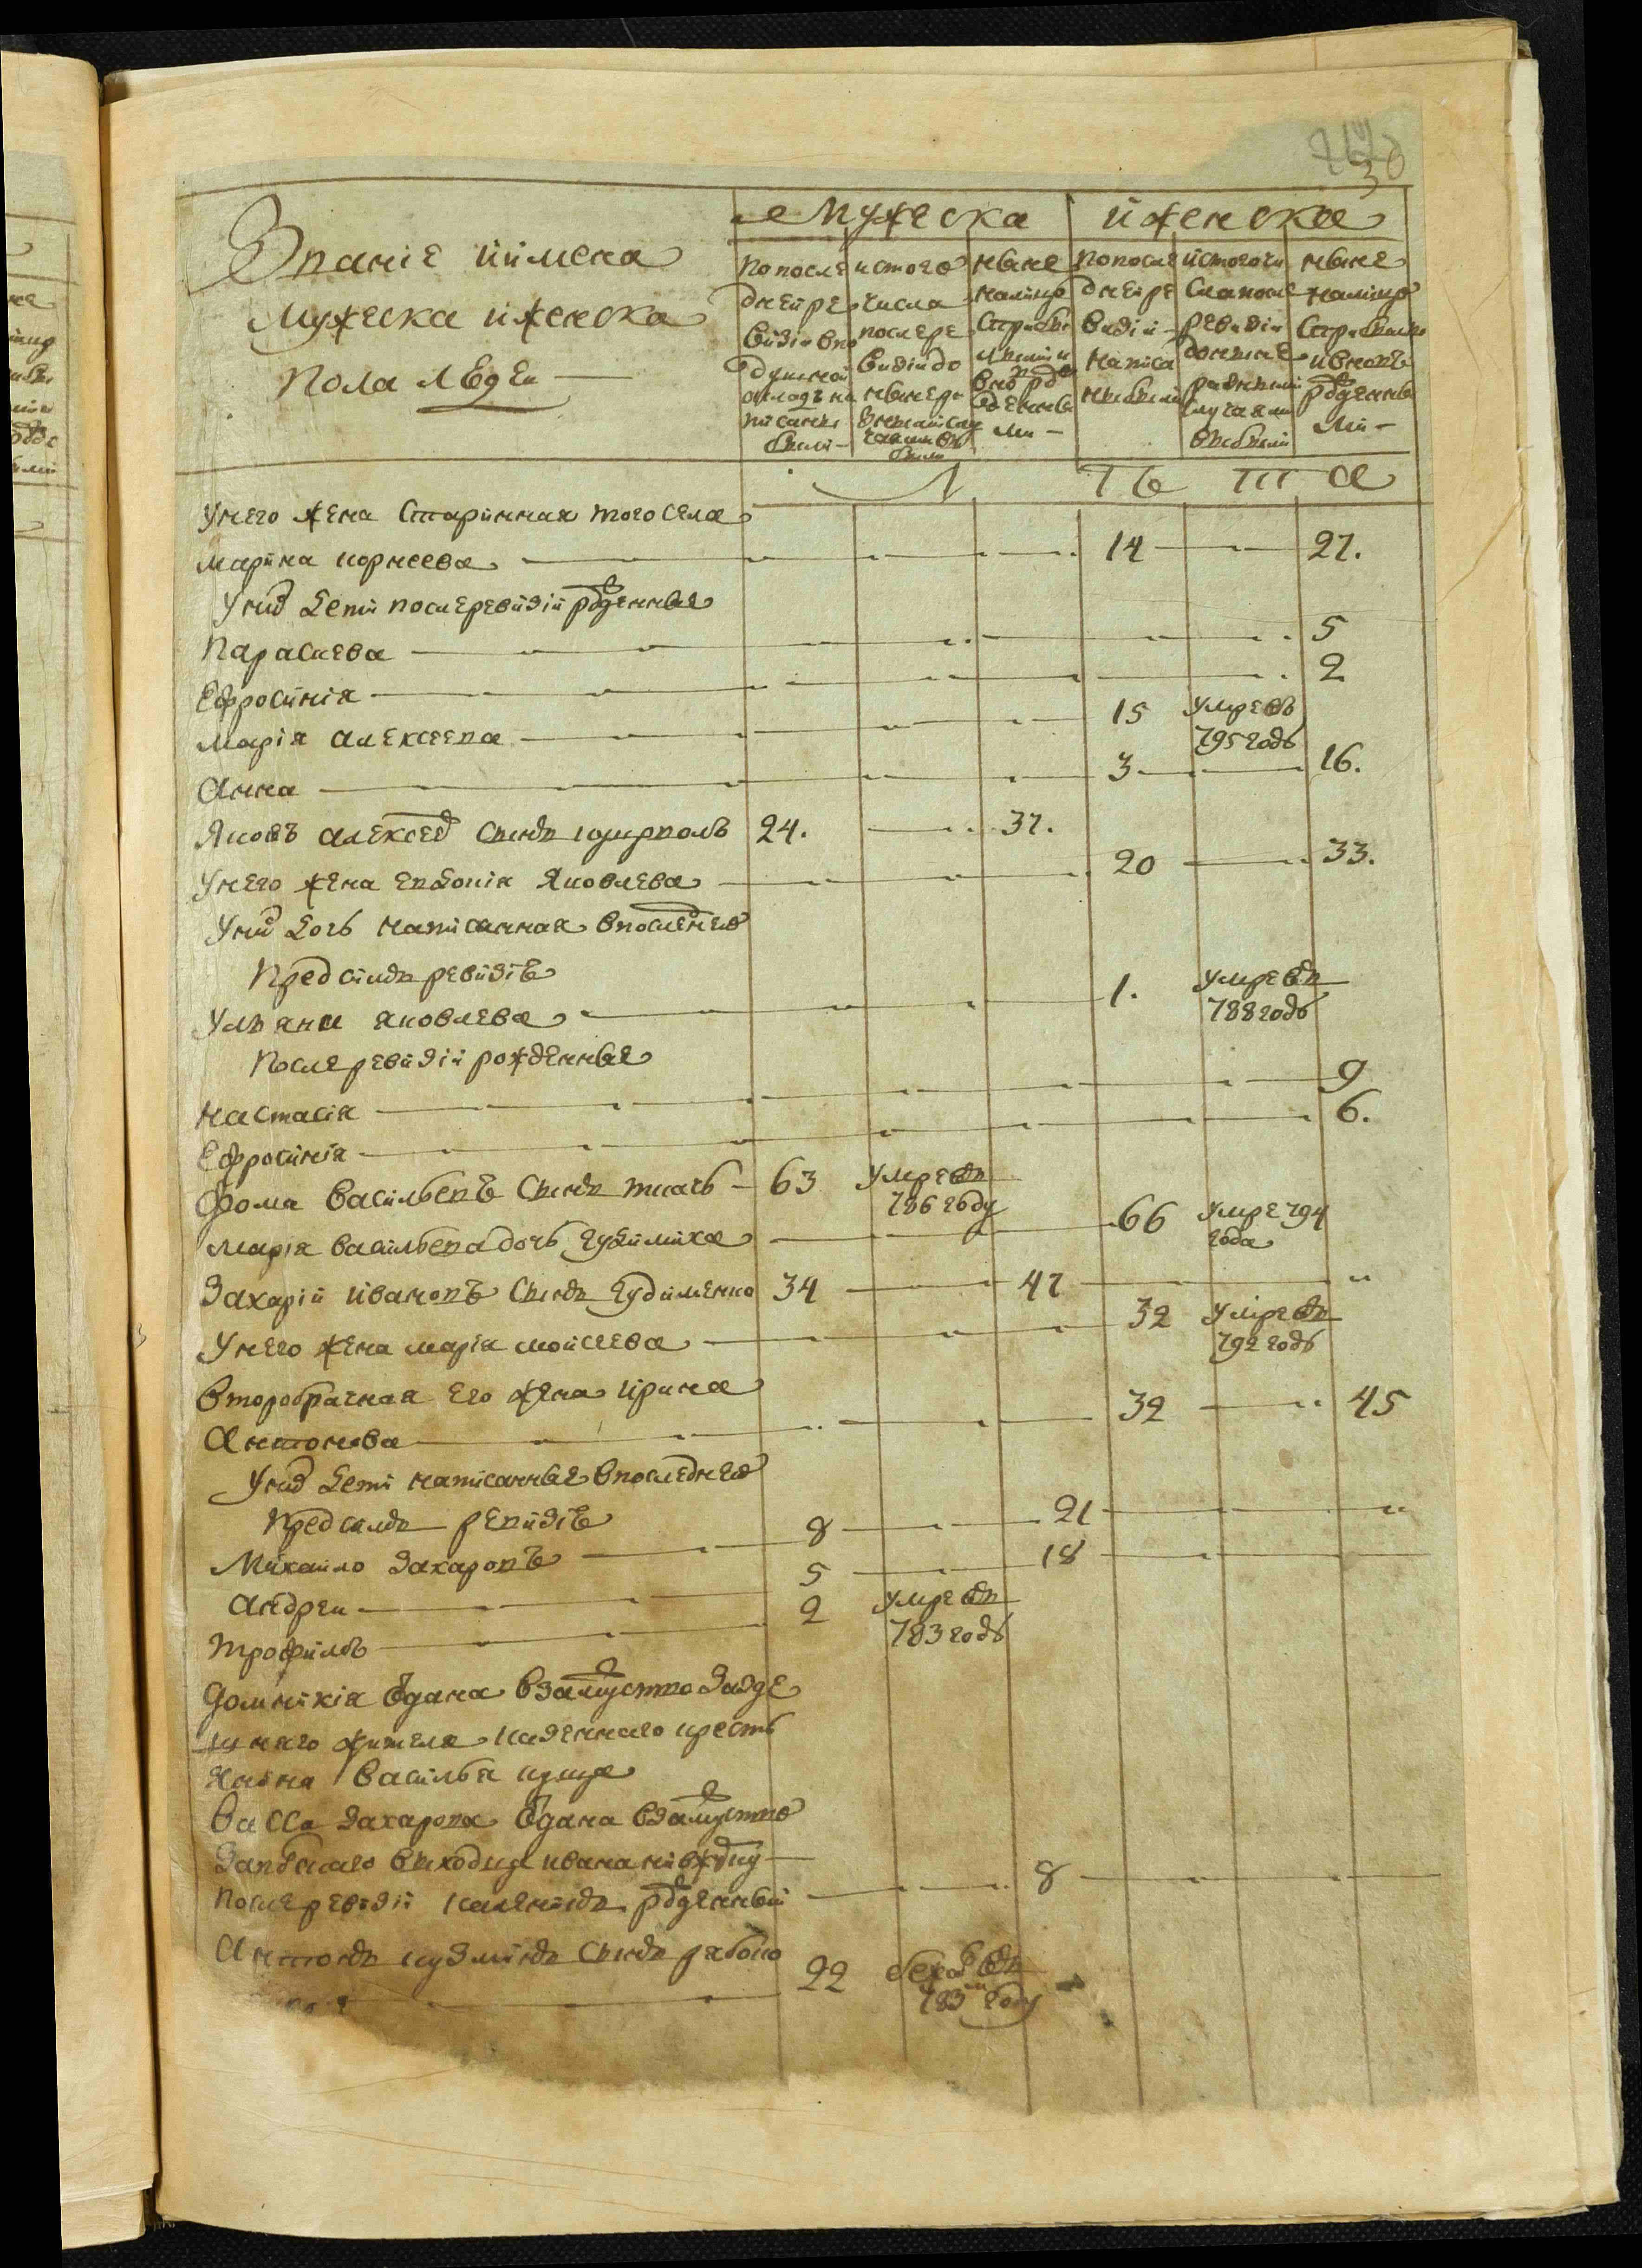 30
Званіе и имена
Мужеска и женска
Пола людеи
Мужеска
и женска
По после
дней ре
визіи въ по
душной
окладъ на
писаны
были
Ис того
числа
после ре
визіи до
ныне ра
зными слу
чаями въ
были
Ныне
налицо
с прибы
лыми и
вноврож
денны
ми
По после
дней ре
визіи
написа
ны были
Ис того чи
сла после
ревизіи
до ныне
разными
случаями
выбыли
Ныне
налицо
с прибылы
и вновь
рожденны
ми
Л Ѣ Т А
У него жена старинная того села
Марина Корнеева 14 27.
У них дети после ревизіи рожденные
Параскева 5
Ефросинія 2
Марія Алексеева 15 умре въ
795 годѣ
Анна 3 16.
Яковъ Алексеев сынъ 24. 37.
У него жена Евдокія Яковлева 20 33.
У них дочь написанная в последнею
пред симъ ревизіѣ
Уліяна Яковлева 1. умре въ
788 годѣ
После ревизіи рожденные
Настасія 9
Ефросинія 6.
Фома Васильевъ сынъ ткачь 63 умре въ
786 году
Марія Васильева дочь Гудимиха 66 умре 794
года
Захарій Ивановъ сынъ Гудименко 34 47
У него жена Марія Мойсеева 32 умре въ
792 годѣ
Второбрачная его жена Ирина
Антонова 32 45
У них дети написанные в последнею
пред симъ ревизіѣ
Михаило Захаровъ 8 21
Андреи 5 18
Трофимъ 2 умре въ
783 годѣ
Домникія отдана в замуство за зде
шняго жителя казеннаго кресть
янина Василья
Васса Захарова отдана в замуство
выходца Ивана
После ревизіи рожденный 8
Антонъ Кузминъ сынъ 22 бежал въ
783 году